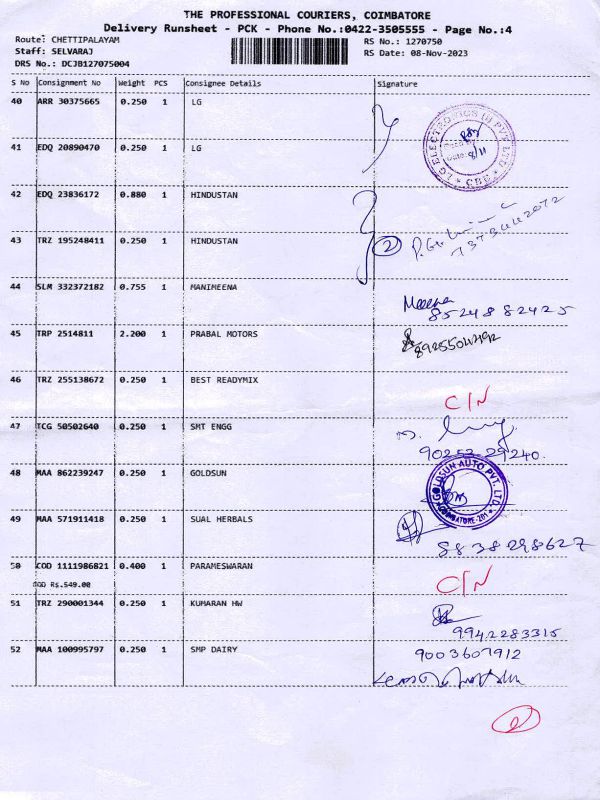 THE PROFESSIONAL COURIERS, COIMBATORE
Delivery Runsheet - PCK - Phone No.:0422-3505555 - Page No.:4
Route: CHETTIPALAYAM
Staff: SELVARAJ
DRS No.: DCJB127075004
RS No.: 1270750
RS Date: 08-Nov-2023
S No Consignment No Weight PCS Consignee Details Signature
40 ARR 30375665 0.250 1 LG
LG ELECTRONICS (I) PVT LTD
Date: 8/11
CBE
41 EDQ 20890470 0.250 1 LG
42 EDQ 23836172 0.880 1 HINDUSTAN
43 TRZ 195248411 0.250 1 HINDUSTAN 2
44 SLM 332372182 0.755 1 MANIMEENA Meena
8524882425
45 TRP 2514811 2.200 1 PRABAL MOTORS
46 TRZ 255138672 0.250 1 BEST READYMIX C/N
47 TCG 50502640 0.250 1 SMT ENGG
90253-29240.
48 MAA 862239247 0.250 1 GOLDSUN GOLDSUN AUTO PVT. LTD.
COIMBATORE-201
49 MAA 571911418 0.250 1 SUAL HERBALS
8838298627
50 COD 1111986821 0.400 1 PARAMESWARAN C/N
COD Rs.549.00
51 TRZ 290001344 0.250 1 KUMARAN HW
9942283315
52 MAA 100995797 0.250 1 SMP DAIRY 9003607912
2